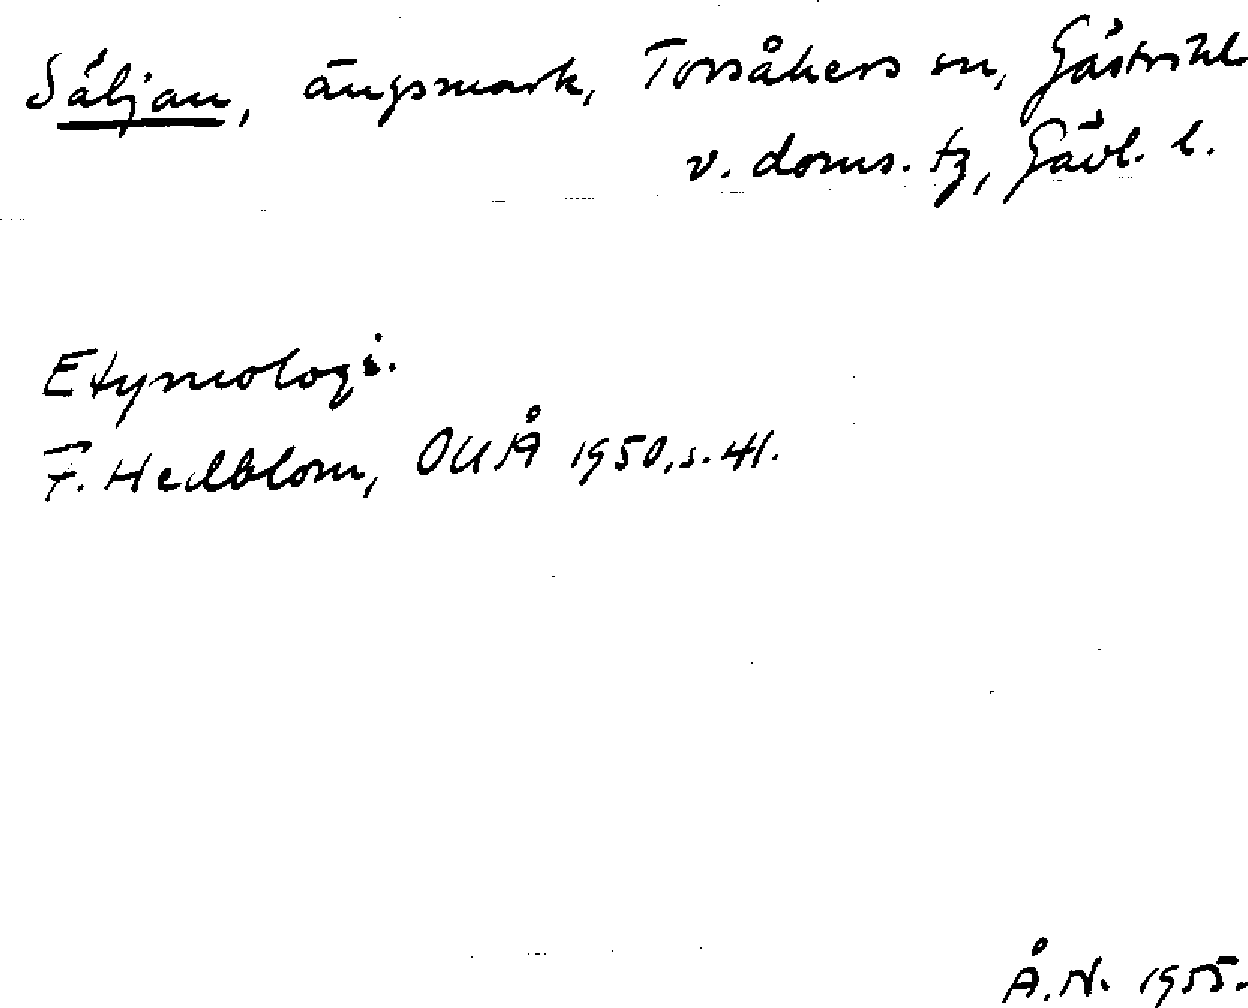 Säljan, ängsmark, Torsåkers sn, Gästrikl.
v. doms. tg, Gävl. l.
Etymologi.
F. Hedblom, OUÅ 1950, s. 41.
Å.N. 1955.